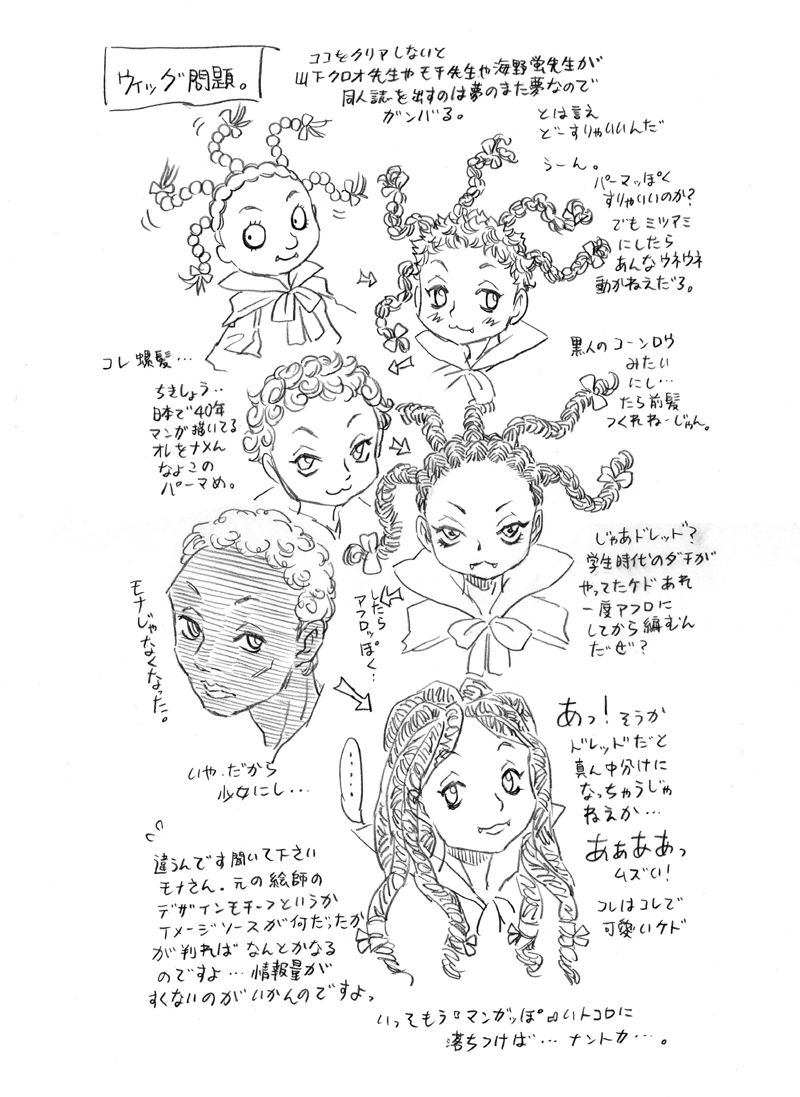 ウィッグ問題。
ココをクリアしないと
山下クロオ先生やモチ先生や海野蛍先生が
同人誌を出すのは夢のまた夢なので
ガンバる。
とは言え
どーすりゃいいんだ
うーん。
パーマッぽく
すりゃいいのか?
でもミツアミ
にしたら
あんなウネウネ
動かねえだろ。
コレ螺髪…
ちきしょう‥
日本で40年
マンガ描いてる
オレをナメん
なよこの
パーマめ。
黒人のコーンロウ
みたい
にし…
たら前髪
つくれねーじゃん。
じゃあドレッド?
学生時代のダチが
やってたケドあれ
一度アフロに
してから編むん
だぜ?
したら
アフロッぽく…
モナじゃなくなった。
いや、だから
少女にし…
あっ!そうか
ドレッドだと
真ん中分けに
なっちゃうじゃ
ねえか…
ああああっ
ムズい!
コレはコレで
可愛いケド
……
違うんです聞いて下さい
モナさん。元の絵師の
デザインモチーフというか
イメージソースが何だったか
が判ればなんとかなる
のですよ…情報量が
すくないのがいかんのですよっ
いってもう『マンガッぽ』いトコロに
落ちつけば…ナントカ…。